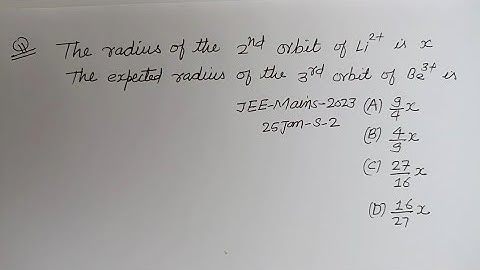 Q The radius of the 2nd orbit of Li²⁺ is x
The expected radius of the 3rd orbit of Be³⁺ is
JEE-Mains-2023 (A) 9/4 x
25Jan-S-2
(B) 4/9 x
(C) 27/16 x
(D) 16/27 x